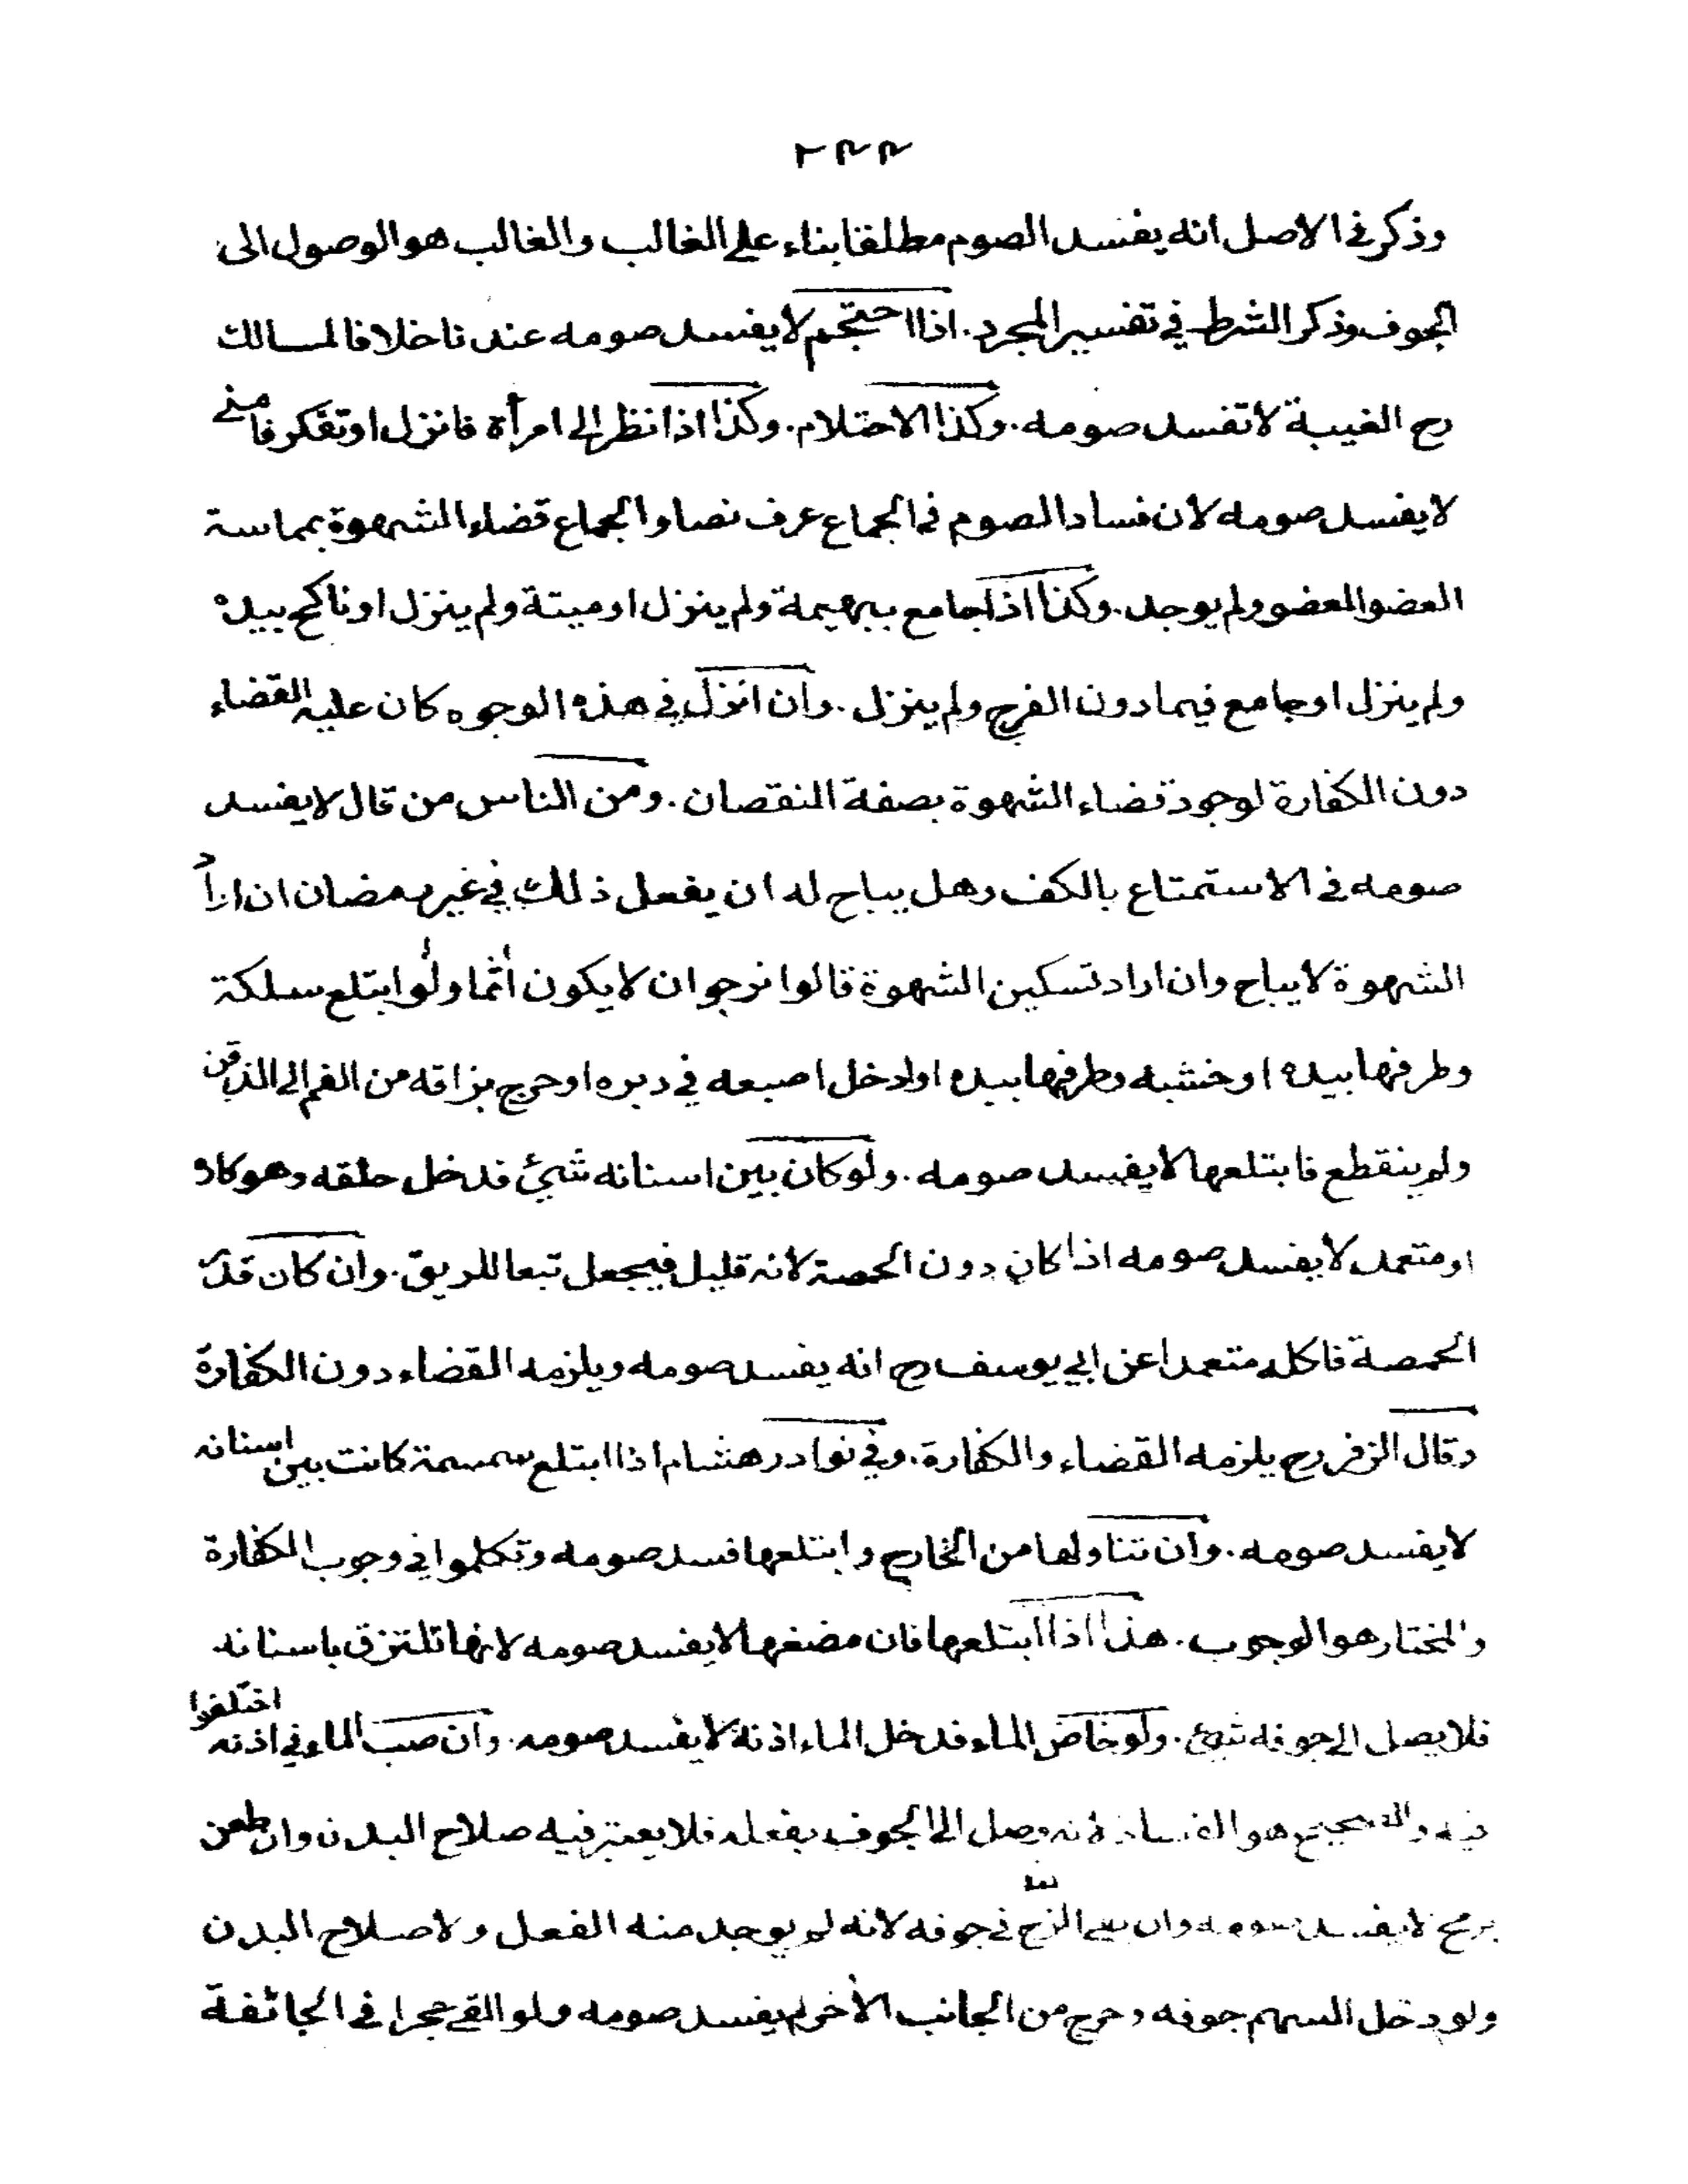 ٢٤٤
وذكر فى الاصل انه يفسد الصوم مطلقا بناء على الغالب والغالب هو الوصول الى
الجوف وذكر الشرط في تفسير المجرد. اذا احتجم لا يفسد صومه عندنا خلافا لمالك
رح الغيبة لا تفسد صومه. وكذا الاحتلام. وكذا اذا نظر الى امرأة فانزل او تفكر فامنى
لا يفسد صومه لان فساد الصوم فى الجماع عرف نصا والجماع قضاء الشهوة بمماسة
العضو العضو ولم يوجد. وكذا اذا جامع ببهيمة ولم ينزل او ميتة ولم ينزل او ناكح بيده
ولم ينزل او جامع فيما دون الفرج ولم ينزل. وان انزل في هذه الوجوه كان عليه القضاء
دون الكفارة لوجود قضاء الشهوة بصفة النقصان. ومن الناس من قال لا يفسد
صومه فى الاستمتاع بالكف وهل يباح له ان يفعل ذلك في غير رمضان ان اراد
الشهوة لا يباح وان اراد تسكين الشهوة قالوا نرجو ان لا يكون اثما ولو ابتلع سلكة
وطرفها بيده او خشبه وطرفها بيده او ادخل اصبعه في دبره او خرج بزاقه من الفم الى الذقن
ولم ينقطع فابتلعها لا يفسد صومه. ولو كان بين اسنانه شيئ فدخل حلقه وهو كاره
او متعمد لا يفسد صومه اذا كان دون الحمصة لانه قليل فيجعل تبعا للريق. وان كان قدر
الحمصة فاكله متعمدا عن ابي يوسف رح انه يفسد صومه ويلزمه القضاء دون الكفارة
وقال الزفر رح يلزمه القضاء والكفارة. وفي نوادر هشام اذا ابتلع سمسمة كانت بين اسنانه
لا يفسد صومه. وان تناولها من الخارج وابتلعها فسد صومه وتكلموا في وجوب الكفارة
والمختار هو الوجوب. هذا اذا ابتلعها فان مضغها لا يفسد صومه لانها تلتزق باسنانه
فلا يصل الى جوفه شيئ. ولو خاض الماء فدخل الماء اذنه لا يفسد صومه. وان صب الماء في اذنه اختلفوا
فيه والصحيح هو الفساد لانه وصل الى الجوف بفعله فلا يعتبر فيه صلاح البدن وان طعن
برمح لا يفسد صومه وان بقى الزج فى جوفه لانه لم يوجد منه الفعل ولا صلاح البدن
ولو دخل السهم جوفه وخرج من الجانب الأخر لم يفسد صومه ولو القي حجرا فى الجائفة